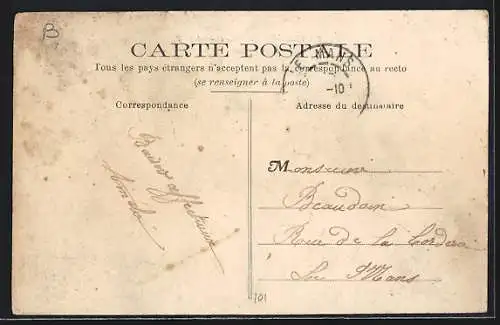 B
CARTE POSTALE
Tous les pays étrangers n'acceptent pas la correspondance au recto
(se renseigner à la poste)
LE MANS
-10
Correspondance
Adresse du destinataire
Baisers affectueux
Monsieur
Beaudoin
Rue de la
Le Mans
101